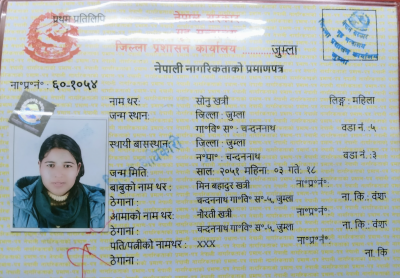 प्रथम प्रतिलिपि
नेपाल सरकार
गृह मन्त्रालय
जिल्ला प्रशासन कार्यालय ..........जुम्ला
नेपाली नागरिकताको प्रमाणपत्र
ना॰प्र॰नं॰ : ६०-१०५४
नाम थर: सोनु खत्री लिङ्ग : महिला
जन्म स्थान: जिल्ला : जुम्ला
गा॰वि॰ स॰ : चन्दननाथ वडा नं. :५
स्थायी बासस्थान: जिल्ला : जुम्ला
न॰पा॰ : चन्दननाथ वडा नं. :३
जन्म मिति साल: २०५१ महिना: ०३ गते: १८
बाबुको नाम थर : मिन बहादुर खत्री ना॰प्र॰नं॰:
ठेगाना : चन्दननाथ गा॰वि॰ स॰-५, जुम्ला ना. कि.: वंशज
आमाको नाम थर: नौरती खत्री ना॰प्र॰नं॰:
ठेगाना : चन्दननाथ गा॰वि॰ स॰-५, जुम्ला ना. कि.: वंशज
पति/पत्नीको नामथर: XXX ना॰प्र॰नं॰:
ठेगाना : ना. कि.